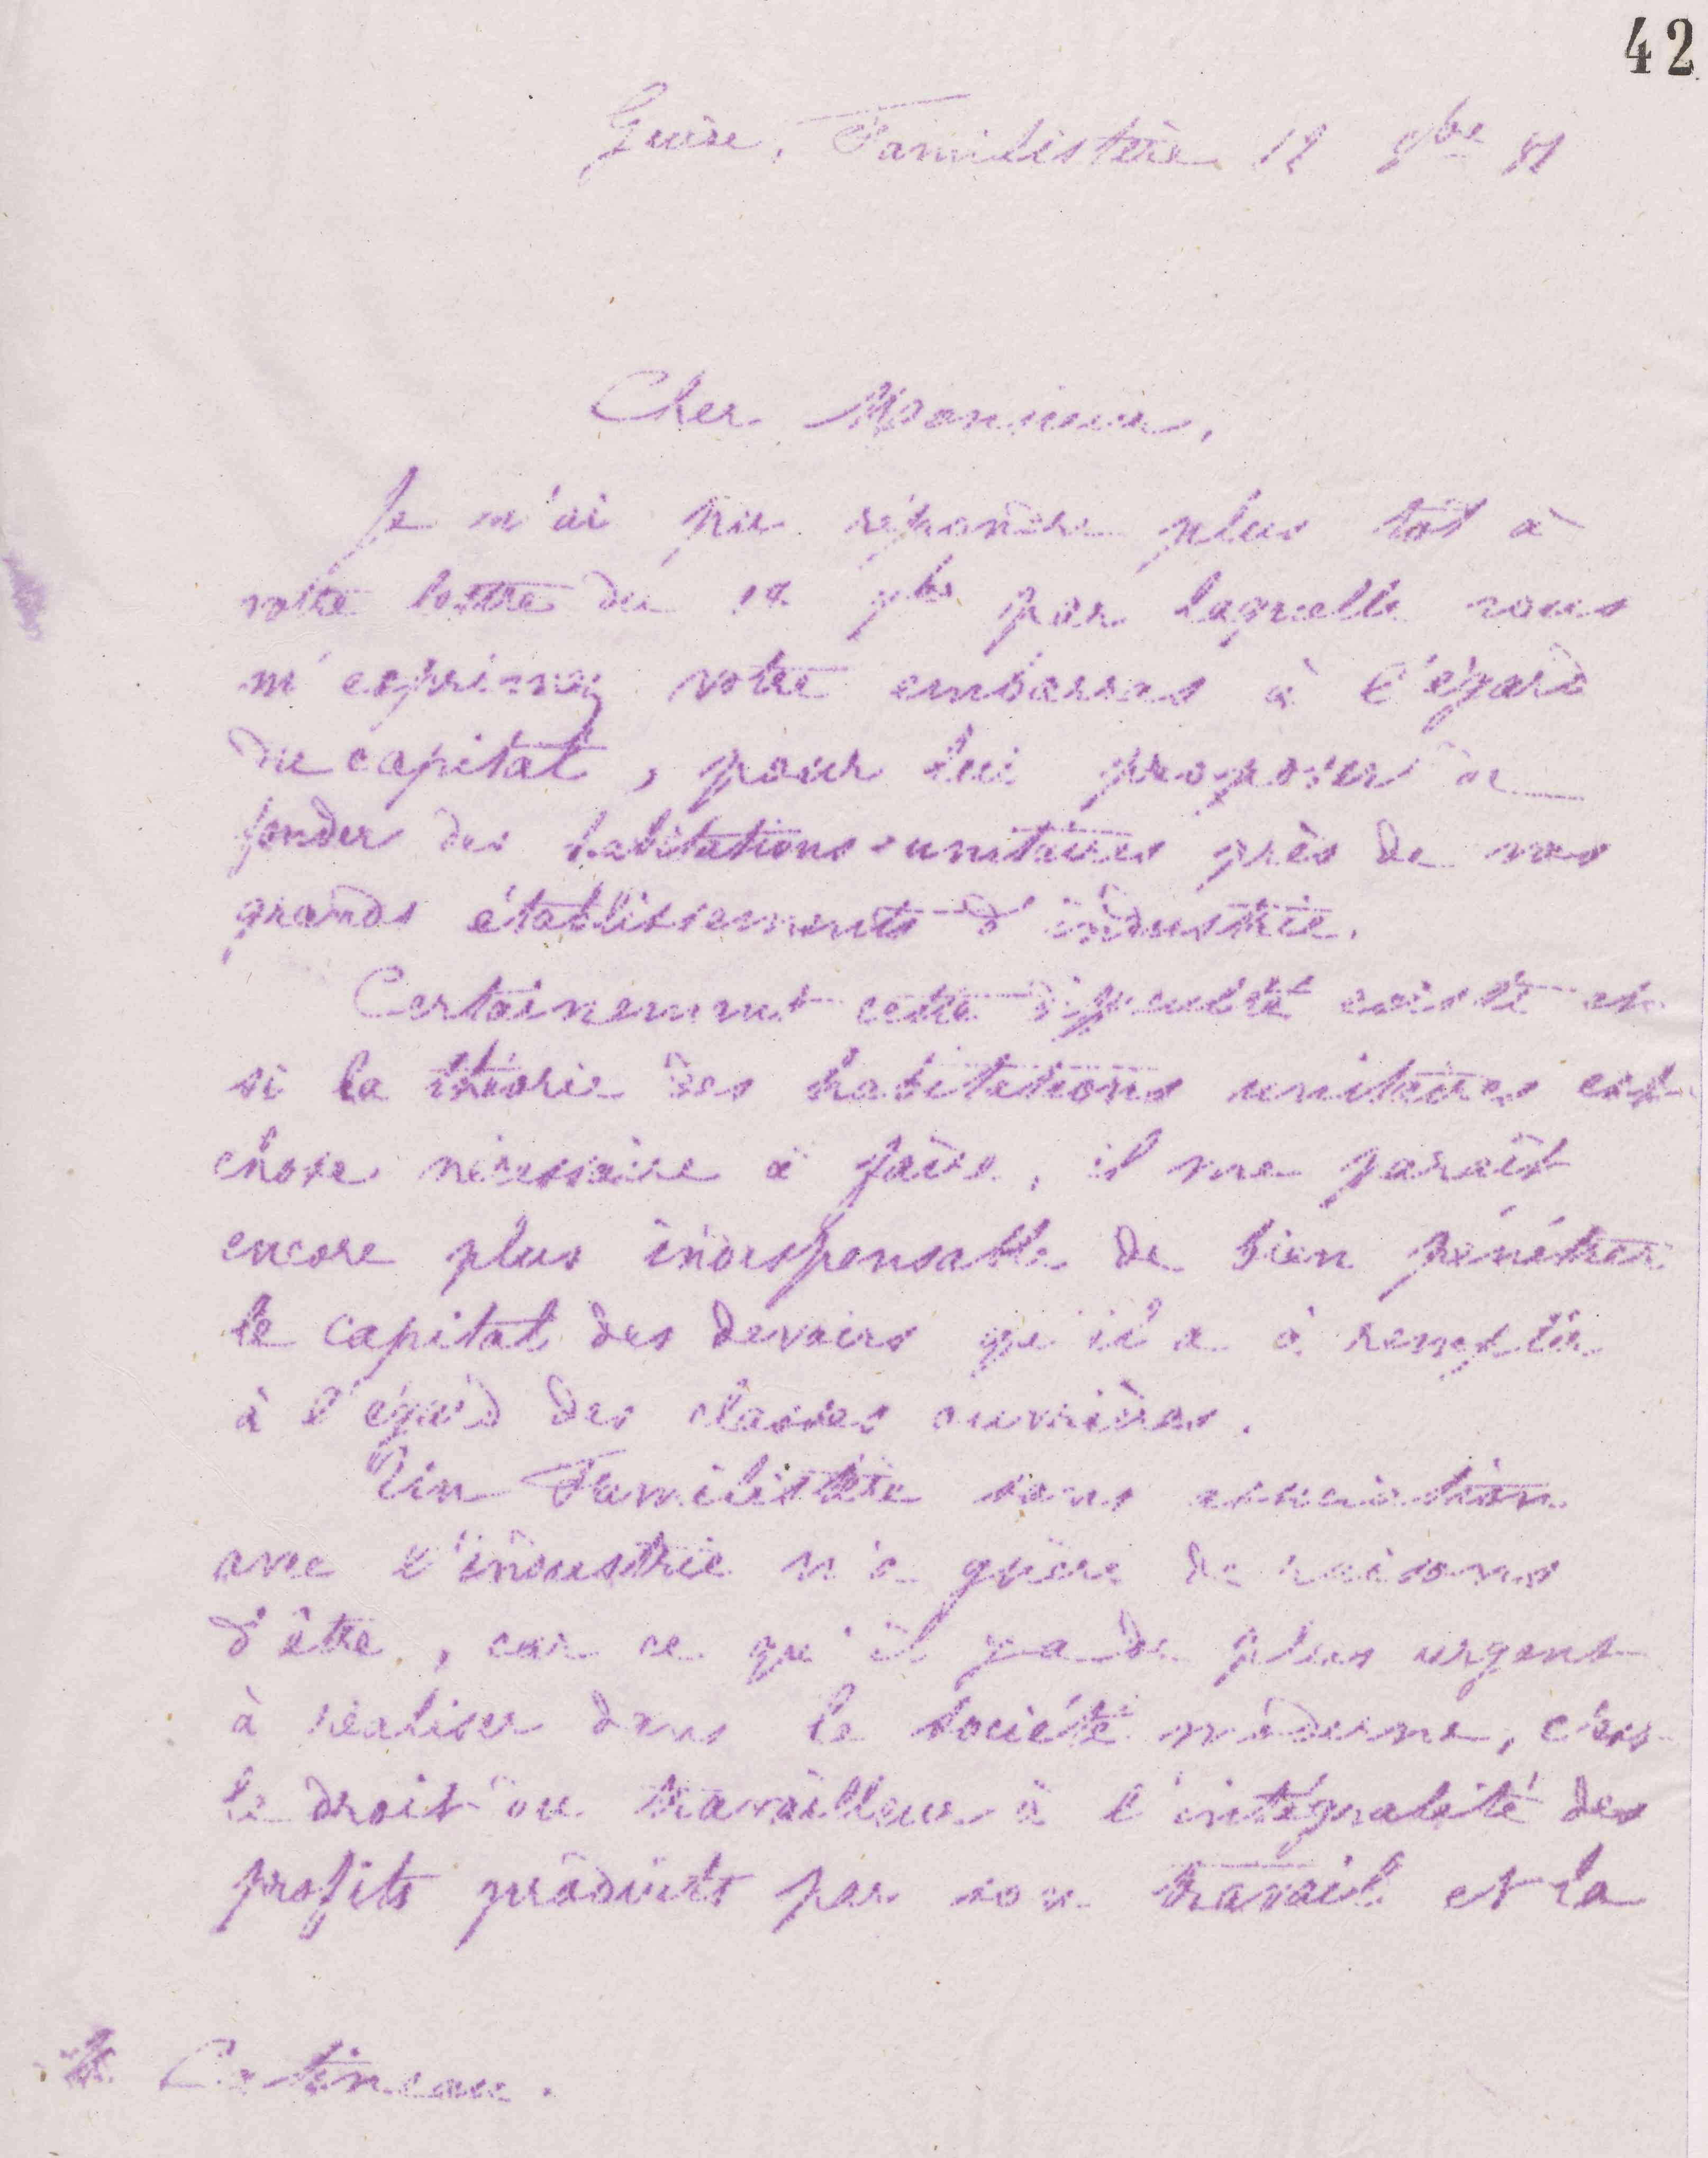 42
Guise, Familistère 12 9bre 81
Cher Monsieur,
Je n'ai pu répondre plus tôt à
votre lettre du 17 7bre par laquelle vous
m'exprimez votre embarras à l'égard
du capital, pour lui proposer de
fonder des habitations unitaires près de nos
grands établissements d'industrie.
Certainement cette difficulté existe et
si la théorie des habitations unitaires est
chose nécessaire à faire, il me paraît
encore plus indispensable de bien pénétrer
le capital des devoirs qu'il a à remplir
à l'égard des classes ouvrières.
Un Familistère sans association
avec l'industrie n'a guère de raisons
d'être, car ce qu'il y a de plus urgent
à réaliser dans la société moderne, c'est
le droit du travailleur à l'intégralité des
profits produits par son travail et la
Catineau.